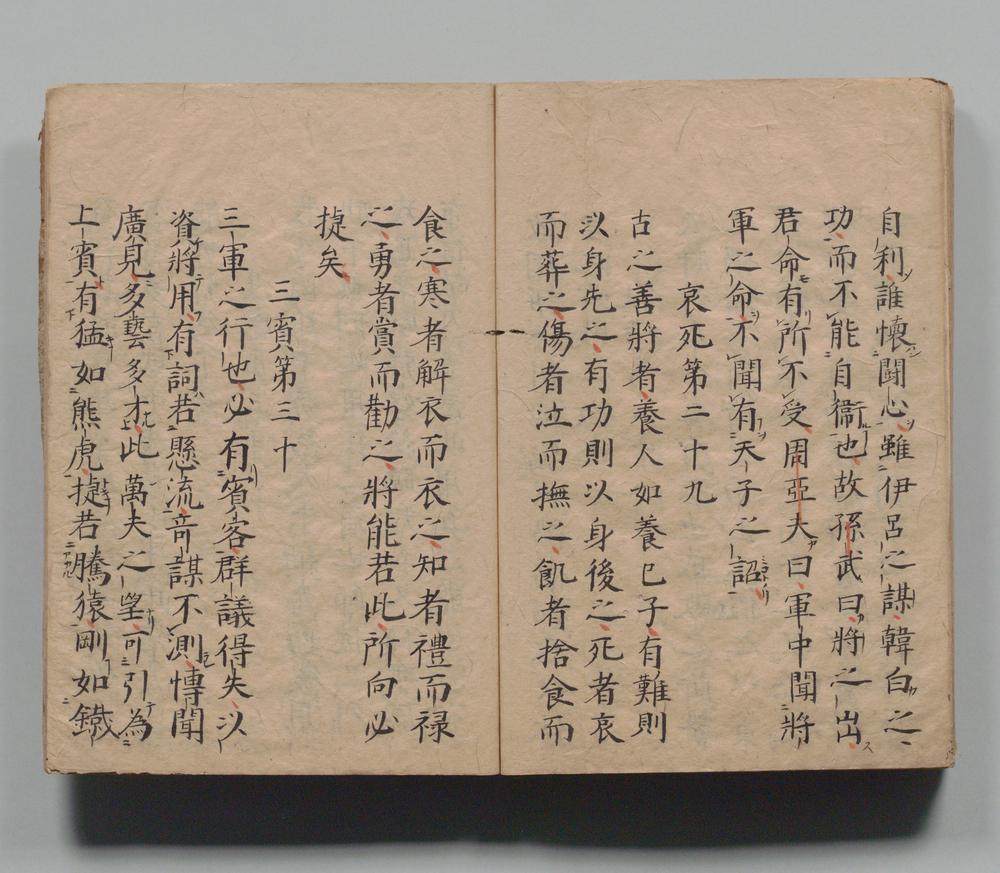 自利誰懷鬪心雖伊呂之謀韓白之
功而不能自衞也故孫武曰將之出
君命有所不受周亞夫曰軍中聞將
軍之命不聞有天子之詔
哀死第二十九
古之善將者養人如養己子有難則
以身先之有功則以身後之死者哀
而葬之傷者泣而撫之飢者捨食而
食之寒者解衣而衣之知者禮而祿
之勇者賞而勸之將能若此所向必
捷矣
三賓第三十
三軍之行也必有賓客群議得失以
資將用有詞若懸流奇謀不測愽聞
廣見多藝多才此萬夫之望可引為
上賓有猛如熊虎捷若騰猿剛如鐵